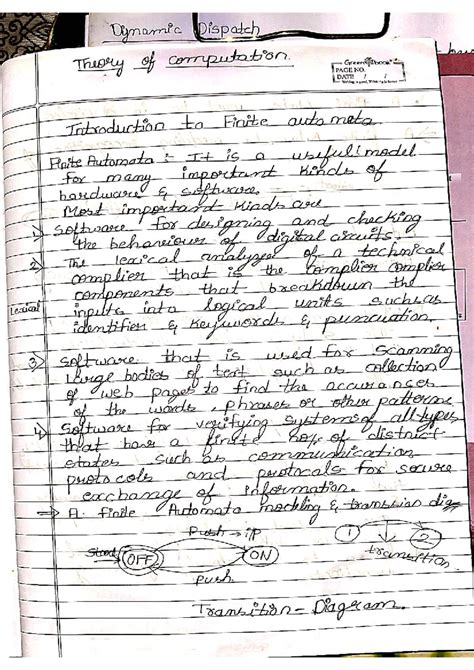 Dynamic Dispatch
Theory of computation.
PAGE NO.
DATE / /
Introduction to Finite automata.
Finite Automata :- It is a useful model
for many important kinds of
hardware & software.
Most important kinds are
1) Software for designing and checking
the behaviour of digital circuits.
2) The lexical analyser of a technical
complier that is the complier complier
components that breakdown the
Lexical
inputs into logical units such as
identifier & keywords & puncuation.
3) Software that is used for scanning
large bodies of text such as collection
of web pages to find the accurances
of the words, phrases or other patterns
4) Software for verifying systems of all types
that has a finite no. of district
states such as communication
protocols and protocals for secure
exchange of information.
→ A finite Automata modling &
Push → i/p
1 2
Start OFF ON
transition
Push
Transition - Diagram.